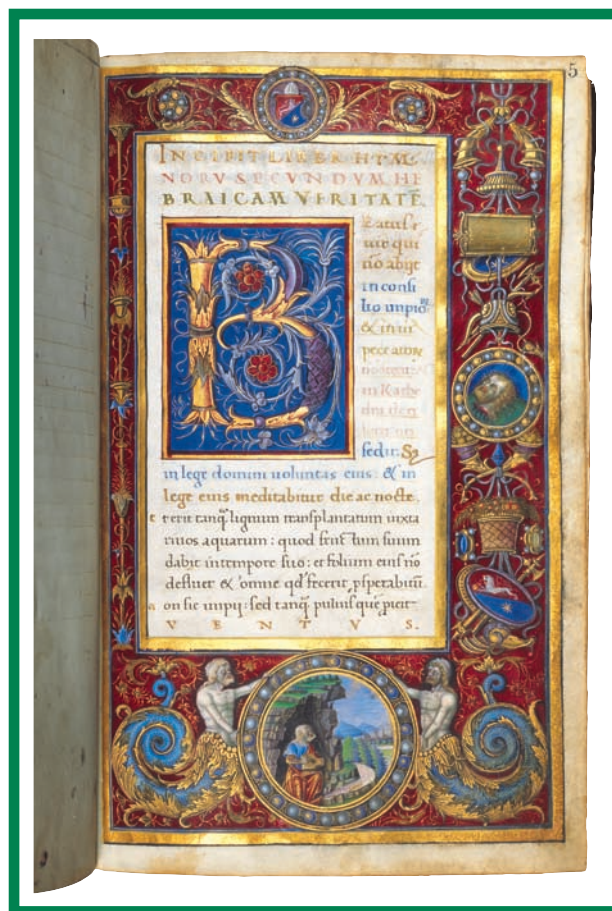 5
INCIPIT LIBER HYM
NORV SECVNDVM HE
BRAICAM VERITATĒ
B
Eatus s
uir qui
nō abijt
in consi
lio impio
& in ui
peccatorꝝ
in Kathe
dra deri
sedit. S;
in lege domini uoluntas eius & in
lege eius meditabitur die ac nocte.
e rerit tanq̄ lignum transplantatum iuxta
riuos aquarum: quod fructum suum
dabit in tempore suo: et folium eius nō
defluet & omne qd fecerit, ꝓsperabitur
on sic impij: sed tanq̄ puluis que ꝓicit
VENTVS.